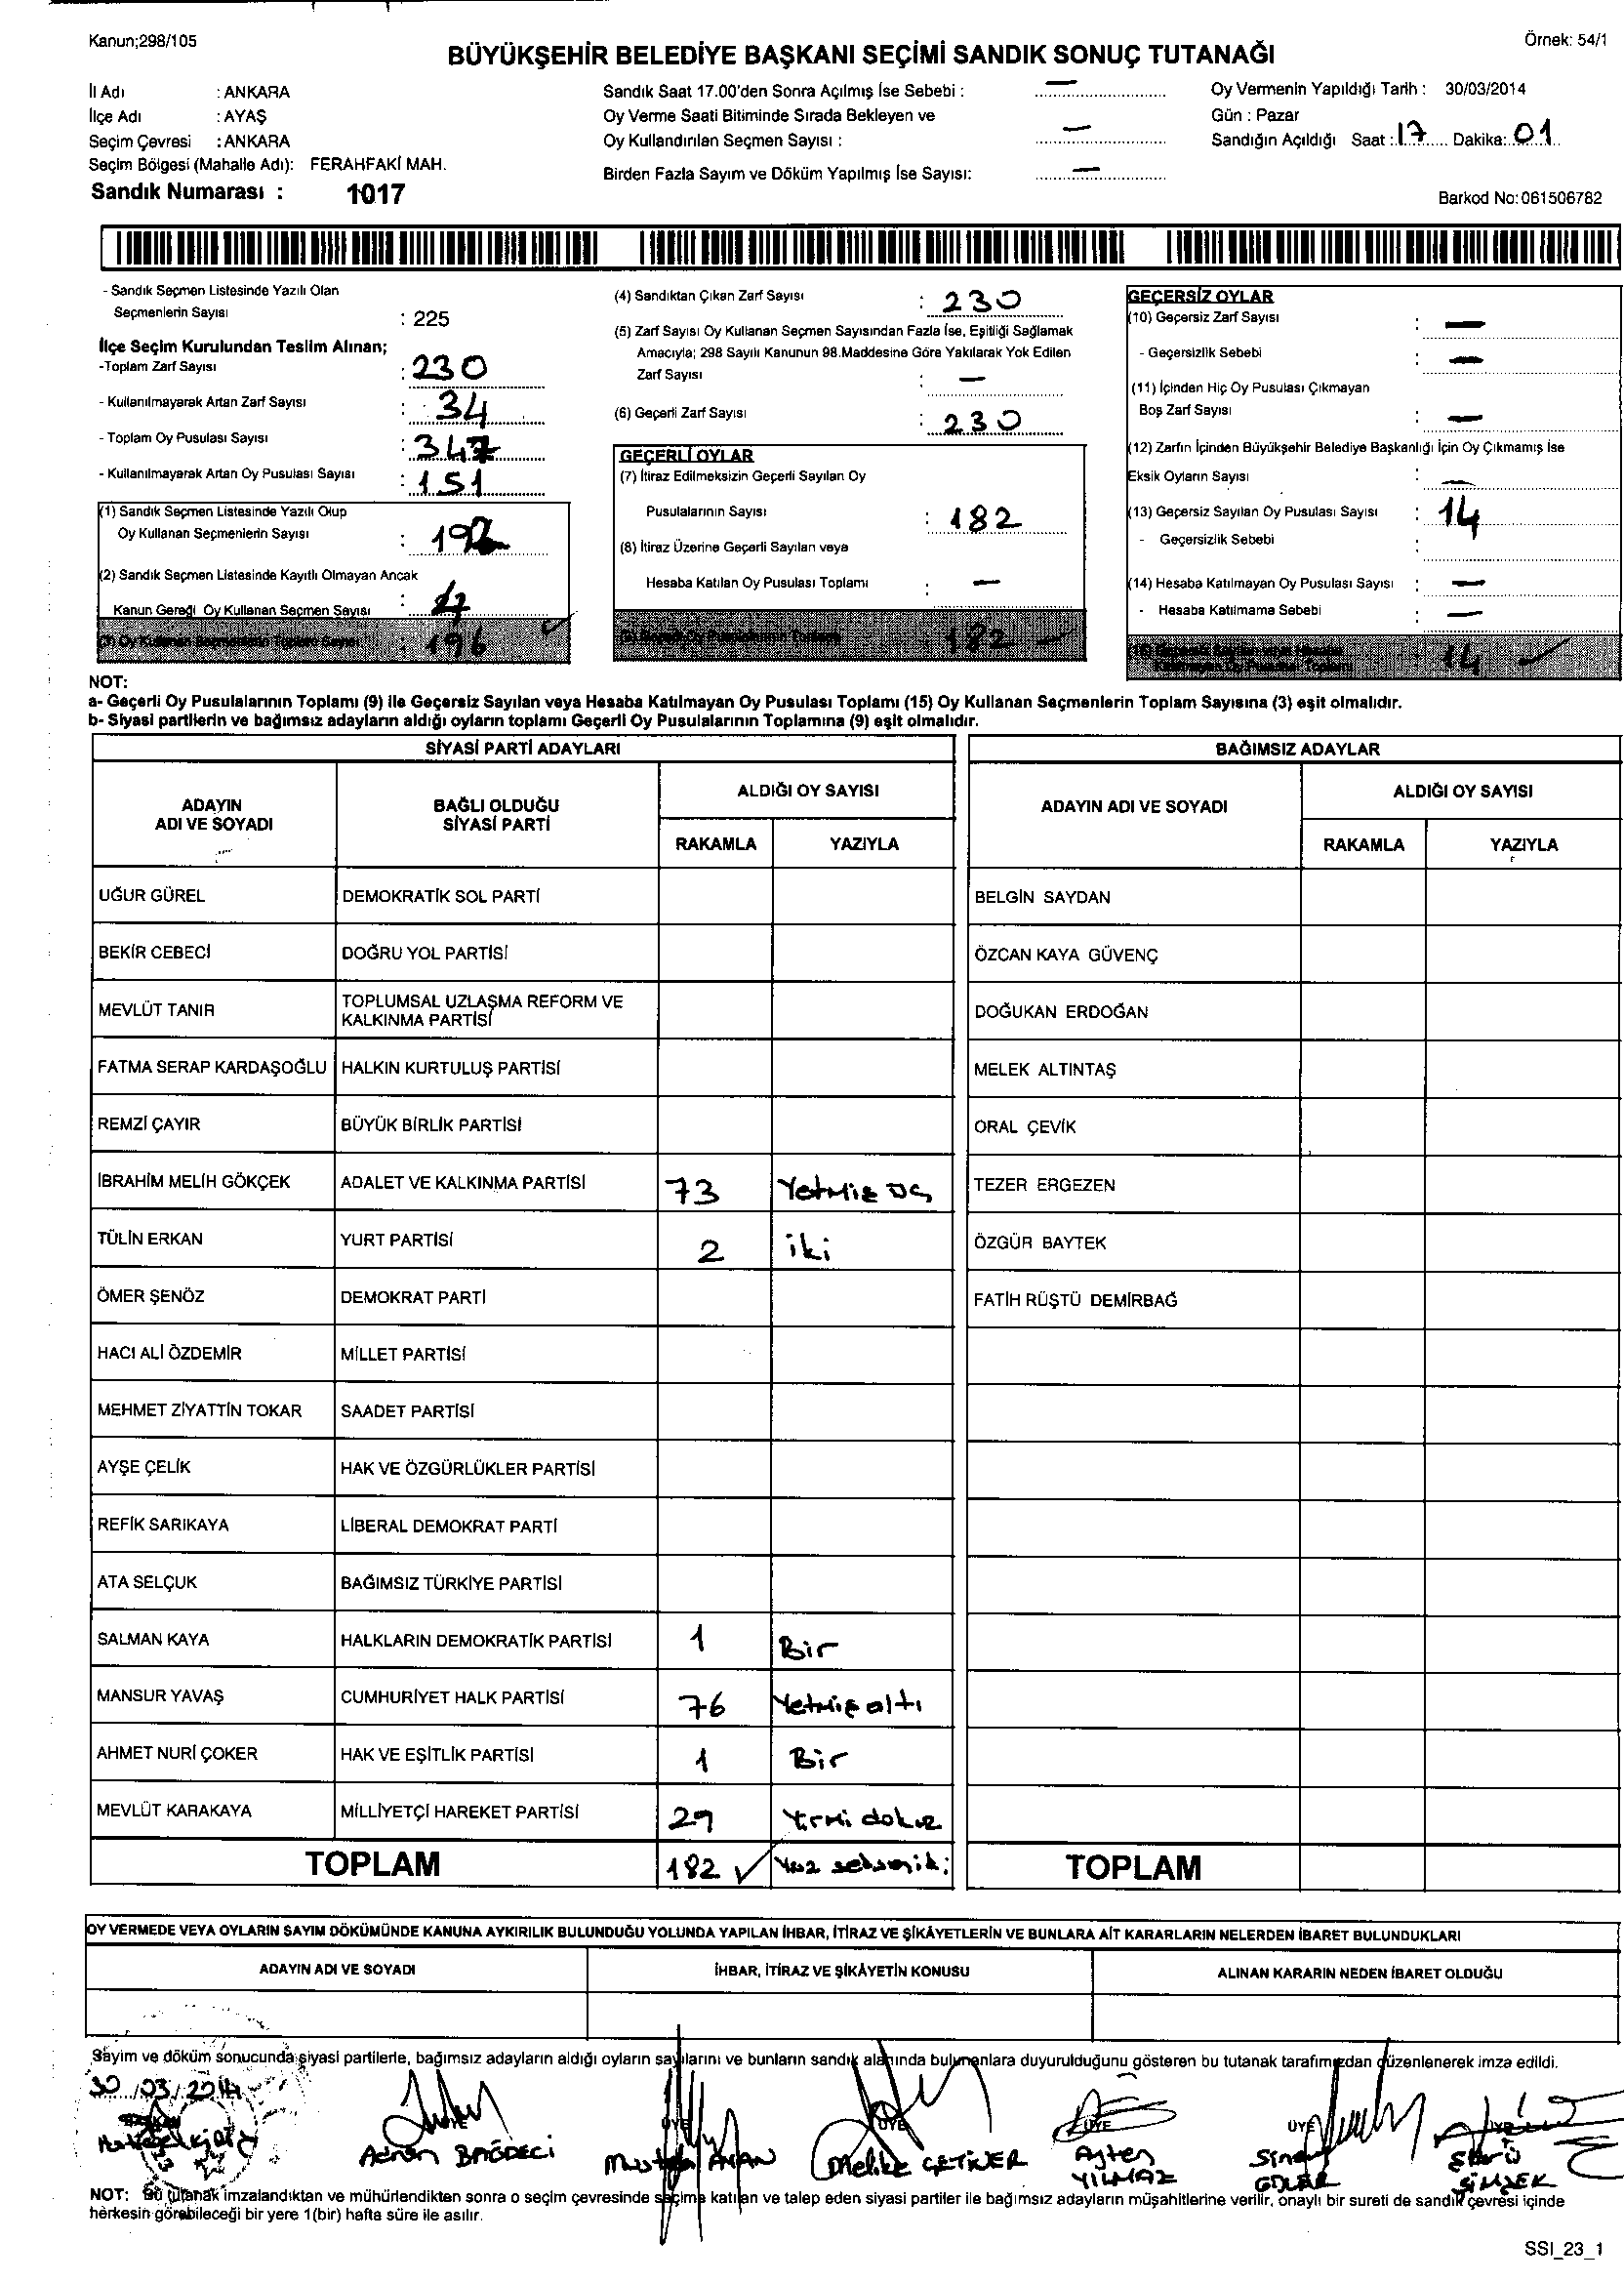 Kanun;298/105
Örnek: 54/1
BÜYÜKŞEHİR BELEDİYE BAŞKANI SEÇİMİ SANDIK SONUÇ TUTANAĞI
İl Adı : ANKARA
İlçe Adı : AYAŞ
Seçim Çevresi : ANKARA
Seçim Bölgesi (Mahalle Adı): FERAHFAKİ MAH.
Sandık Numarası : 1017
Sandık Saat 17.00'den Sonra Açılmış İse Sebebi : —
Oy Verme Saati Bitiminde Sırada Bekleyen ve
Oy Kullandırılan Seçmen Sayısı : —
Birden Fazla Sayım ve Döküm Yapılmış İse Sayısı: —
Oy Vermenin Yapıldığı Tarih : 30/03/2014
Gün : Pazar
Sandığın Açıldığı Saat :.17...... Dakika:..01..
Barkod No:061506782
- Sandık Seçmen Listesinde Yazılı Olan
Seçmenlerin Sayısı : 225
İlçe Seçim Kurulundan Teslim Alınan;
-Toplam Zarf Sayısı : 230
- Kullanılmayarak Artan Zarf Sayısı : 34
- Toplam Oy Pusulası Sayısı : 347
- Kullanılmayarak Artan Oy Pusulası Sayısı : 151
(1) Sandık Seçmen Listesinde Yazılı Olup
Oy Kullanan Seçmenlerin Sayısı :
(2) Sandık Seçmen Listesinde Kayıtlı Olmayan Ancak
Kanun Gereği Oy Kullanan Seçmen Sayısı : 4
(3) Oy Kullanan Seçmenlerin Toplam Sayısı : 196
(4) Sandıktan Çıkan Zarf Sayısı : 230
(5) Zarf Sayısı Oy Kullanan Seçmen Sayısından Fazla İse, Eşitliği Sağlamak
Amacıyla; 298 Sayılı Kanunun 98.Maddesine Göre Yakılarak Yok Edilen
Zarf Sayısı : —
(6) Geçerli Zarf Sayısı : 230
GEÇERLİ OYLAR
(7) İtiraz Edilmeksizin Geçerli Sayılan Oy
Pusulalarının Sayısı : 182
(8) İtiraz Üzerine Geçerli Sayılan veya
Hesaba Katılan Oy Pusulası Toplamı : —
(9) Geçerli Oy Pusulalarının Toplamı : 182
GEÇERSİZ OYLAR
(10) Geçersiz Zarf Sayısı : —
- Geçersizlik Sebebi : —
(11) İçinden Hiç Oy Pusulası Çıkmayan
Boş Zarf Sayısı : —
(12) Zarfın İçinden Büyükşehir Belediye Başkanlığı İçin Oy Çıkmamış İse
Eksik Oyların Sayısı : —
(13) Geçersiz Sayılan Oy Pusulası Sayısı : 14
- Geçersizlik Sebebi :
(14) Hesaba Katılmayan Oy Pusulası Sayısı : —
- Hesaba Katılmama Sebebi : —
(15) Geçersiz Sayılan veya Hesaba
Katılmayan Oy Pusulası Toplamı : 14
NOT:
a- Geçerli Oy Pusulalarının Toplamı (9) ile Geçersiz Sayılan veya Hesaba Katılmayan Oy Pusulası Toplamı (15) Oy Kullanan Seçmenlerin Toplam Sayısına (3) eşit olmalıdır.
b- Siyasi partilerin ve bağımsız adayların aldığı oyların toplamı Geçerli Oy Pusulalarının Toplamına (9) eşit olmalıdır.
SİYASİ PARTİ ADAYLARI
ADAYIN ADI VE SOYADI
BAĞLI OLDUĞU SİYASİ PARTİ
ALDIĞI OY SAYISI
RAKAMLA YAZIYLA
UĞUR GÜREL DEMOKRATİK SOL PARTİ
BEKİR CEBECİ DOĞRU YOL PARTİSİ
MEVLÜT TANIR TOPLUMSAL UZLAŞMA REFORM VE KALKINMA PARTİSİ
FATMA SERAP KARDAŞOĞLU HALKIN KURTULUŞ PARTİSİ
REMZİ ÇAYIR BÜYÜK BİRLİK PARTİSİ
İBRAHİM MELİH GÖKÇEK ADALET VE KALKINMA PARTİSİ 73 Yetmiş üç
TÜLİN ERKAN YURT PARTİSİ 2 iki
ÖMER ŞENÖZ DEMOKRAT PARTİ
HACI ALİ ÖZDEMİR MİLLET PARTİSİ
MEHMET ZİYATTİN TOKAR SAADET PARTİSİ
AYŞE ÇELİK HAK VE ÖZGÜRLÜKLER PARTİSİ
REFİK SARIKAYA LİBERAL DEMOKRAT PARTİ
ATA SELÇUK BAĞIMSIZ TÜRKİYE PARTİSİ
SALMAN KAYA HALKLARIN DEMOKRATİK PARTİSİ 1 Bir
MANSUR YAVAŞ CUMHURİYET HALK PARTİSİ 76 Yetmiş altı
AHMET NURİ ÇOKER HAK VE EŞİTLİK PARTİSİ 1 Bir
MEVLÜT KARAKAYA MİLLİYETÇİ HAREKET PARTİSİ 29 Yirmi dokuz
TOPLAM 182 ✓ Yüz seksen iki
BAĞIMSIZ ADAYLAR
ADAYIN ADI VE SOYADI
ALDIĞI OY SAYISI
RAKAMLA YAZIYLA
BELGİN SAYDAN
ÖZCAN KAYA GÜVENÇ
DOĞUKAN ERDOĞAN
MELEK ALTINTAŞ
ORAL ÇEVİK
TEZER ERGEZEN
ÖZGÜR BAYTEK
FATİH RÜŞTÜ DEMİRBAĞ
TOPLAM
OY VERMEDE VEYA OYLARIN SAYIM DÖKÜMÜNDE KANUNA AYKIRILIK BULUNDUĞU YOLUNDA YAPILAN İHBAR, İTİRAZ VE ŞİKÂYETLERİN VE BUNLARA AİT KARARLARIN NELERDEN İBARET BULUNDUKLARI
ADAYIN ADI VE SOYADI İHBAR, İTİRAZ VE ŞİKÂYETİN KONUSU ALINAN KARARIN NEDEN İBARET OLDUĞU
Sayım ve döküm sonucunda siyasi partilerle, bağımsız adayların aldığı oyların sayılarını ve bunların sandık alanında bulunanlara duyurulduğunu gösteren bu tutanak tarafımızdan düzenlenerek imza edildi.
30/03/2014
BAŞKAN ÜYE ÜYE ÜYE ÜYE ÜYE ÜYE
Adnan BAĞDECİ
Mustafa AYHAN
Melike ÇETİNER
Ayten YILMAZ
Sinan GÜLER
Ebrü ŞİMŞEK
NOT: Bu tutanak imzalandıktan ve mühürlendikten sonra o seçim çevresinde seçime katılan ve talep eden siyasi partiler ile bağımsız adayların müşahitlerine verilir, onaylı bir sureti de sandık çevresi içinde
herkesin görebileceği bir yere 1(bir) hafta süre ile asılır.
SSI_23_1